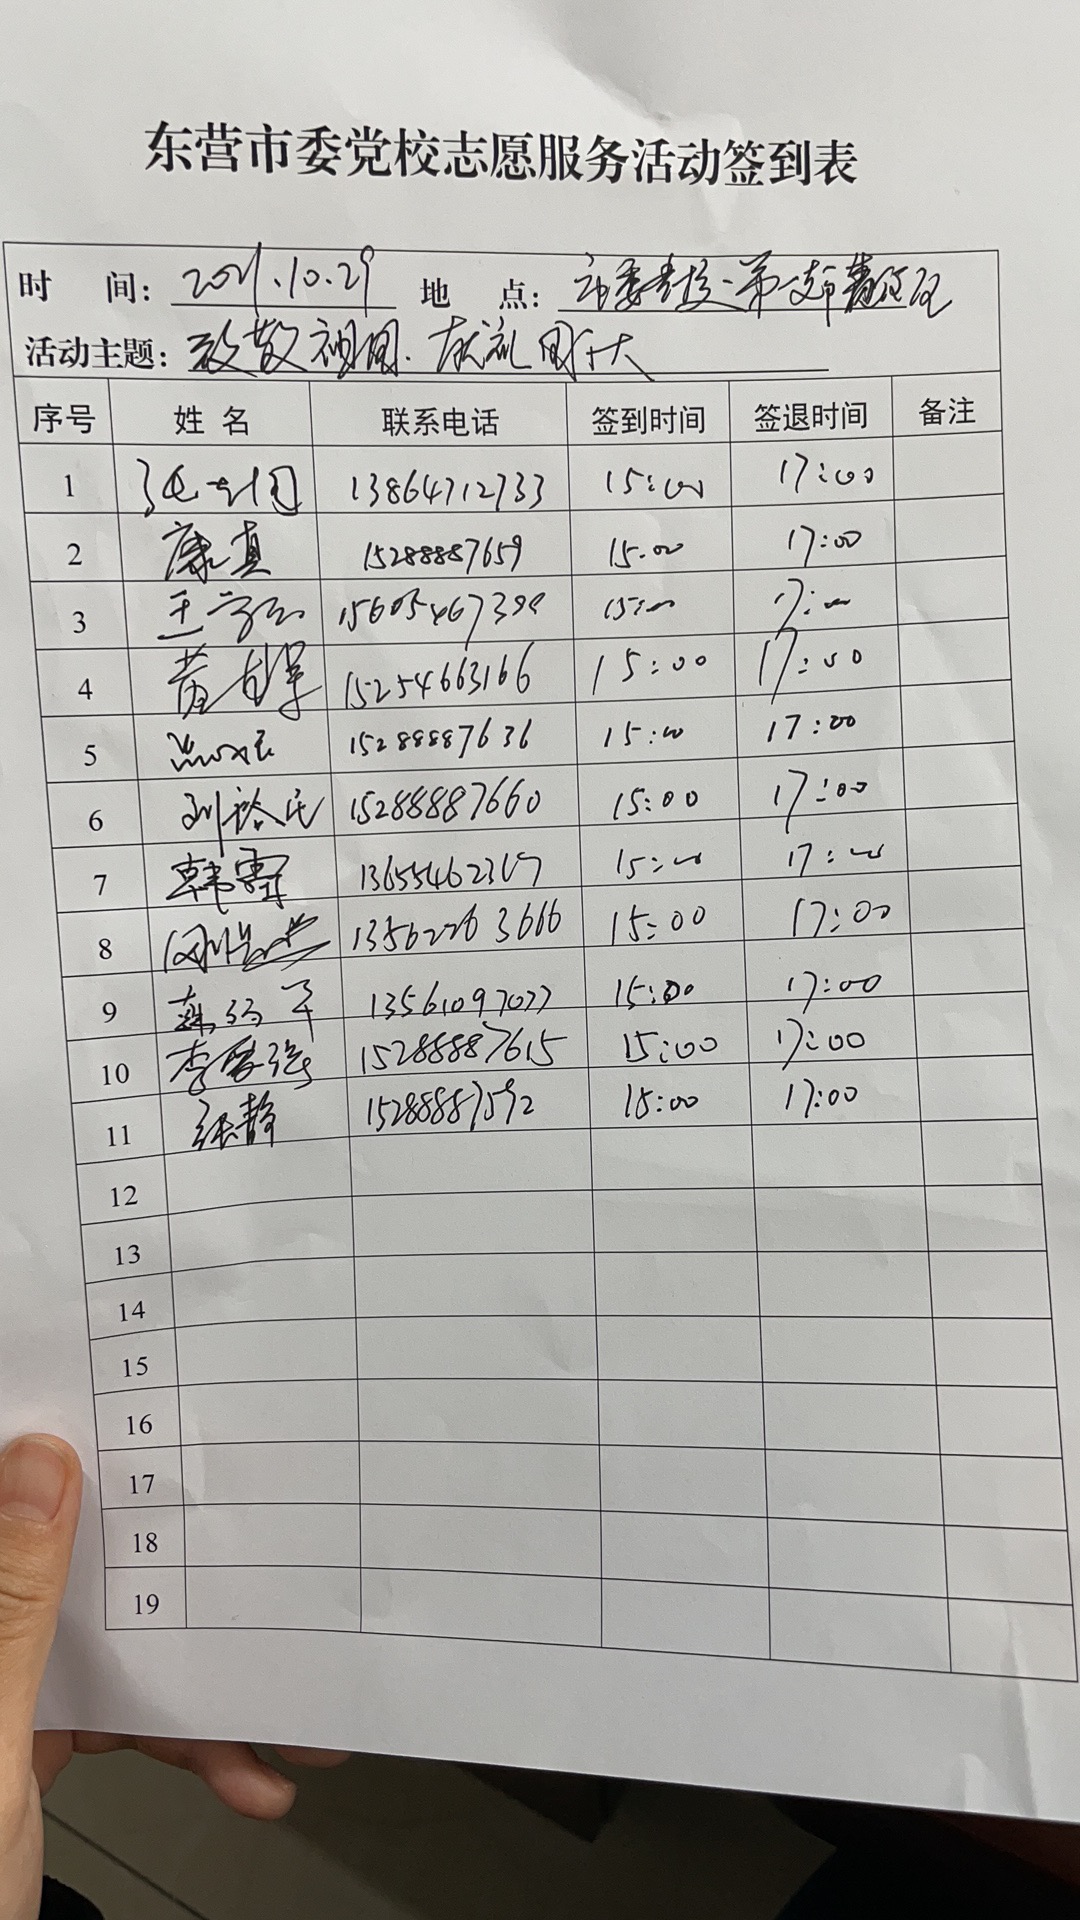 东营市委党校志愿服务活动签到表
时 间: 2021.10.29 地 点: 市委党校
活动主题: 致敬祖国. 献礼二十大
序号 姓名 联系电话 签到时间 签退时间 备注
1 13864712733 15:00 17:00
2 康真 15288887659 15:00 17:00
3 王 15:00 17:00
4 黄 15254663166 15:00 17:00
5 15288887636 15:00 17:00
6 刘裕民 15288887660 15:00 17:00
7 韩霄 15:00 17:00
8 15:00 17:00
9 13561097077 15:00 17:00
10 李 15288887615 15:00 17:00
11 张静 15288887592 15:00 17:00
12
13
14
15
16
17
18
19